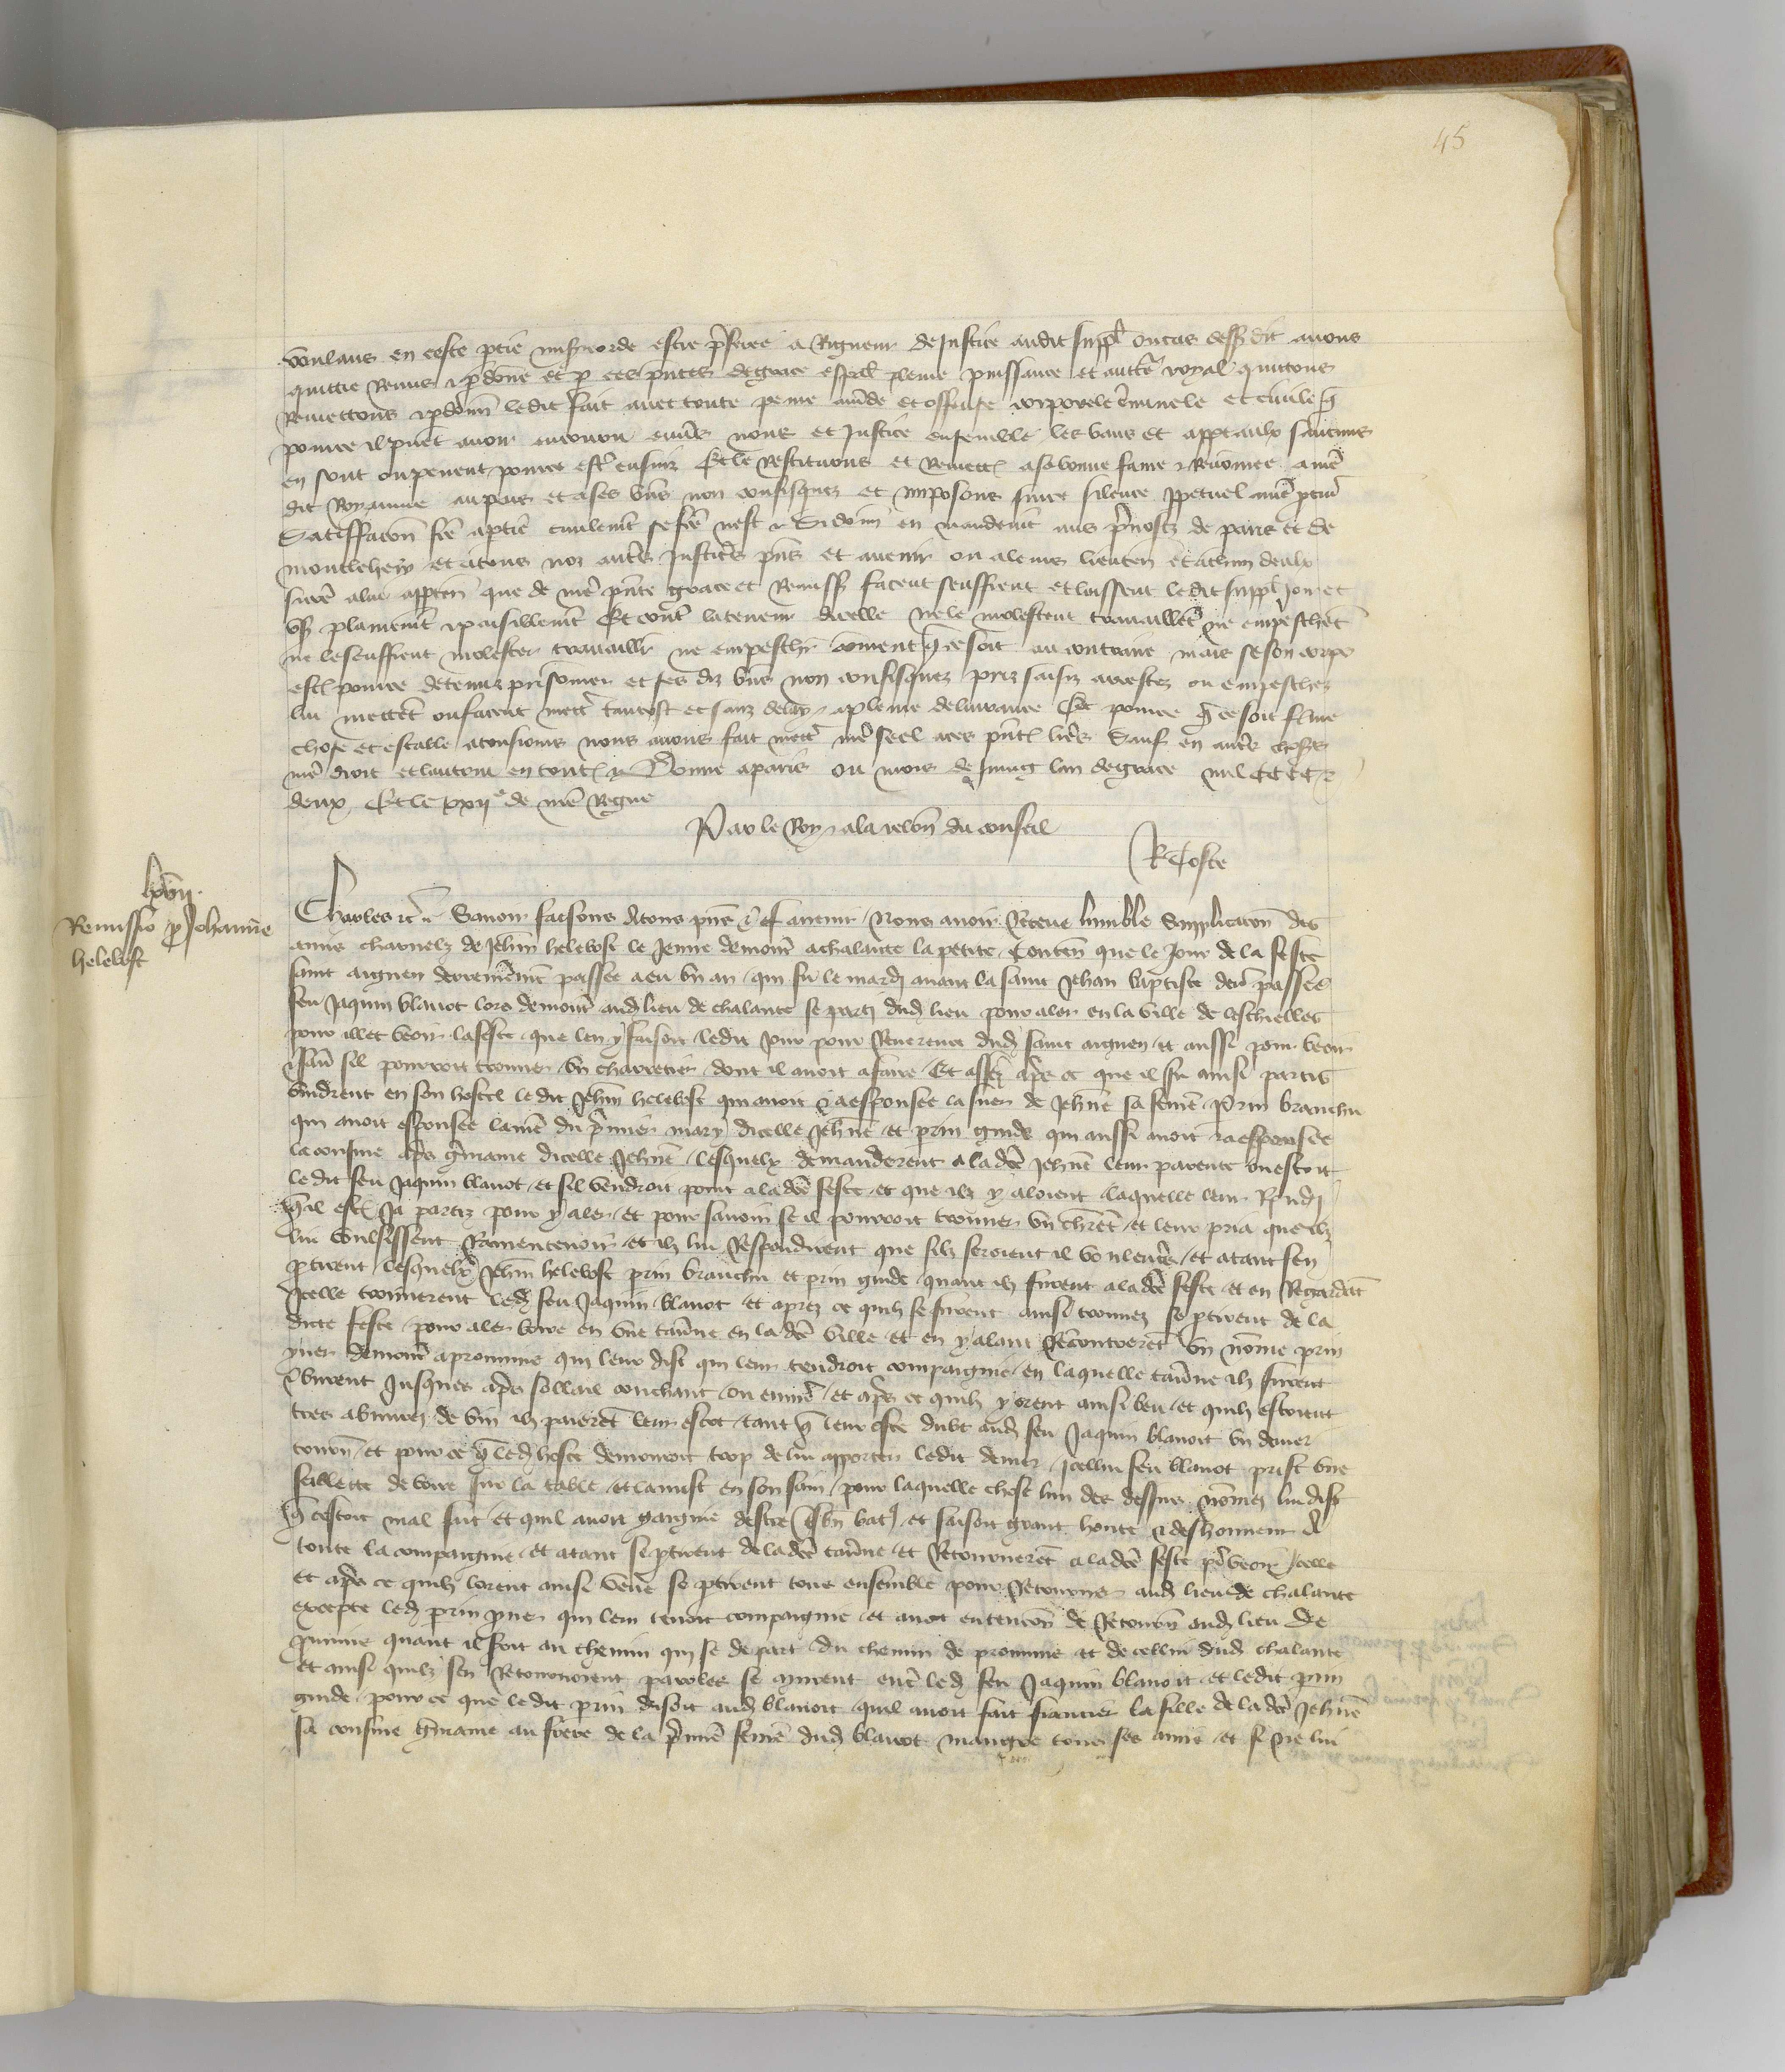 45
voulans en ceste ptie misericorde estre preferee a Rigueur de justice audit suppl ou cas dess dit avons
quittie Remis & pdonne et p ces pntes de grace especal pleine puissance et auctte royal quittons
Remettons & pdonn ledit fait avec toute peine amde et offense corporele criminele et civile q
pource il puet avoir encouru envers nous et justice ensemble les bans et appeaulx saucuns
en sont ou pevent pource estre ensuiz Et le Restituons et Remett a sa bonne fame & Renomee a nre
dit Royaume au pais et a ses biens non confisquez et imposons sur ce silence ppetuel a nre pcur
Satisfacon fce a ptie civilemt se fce nest & Si donn en mandemt aus prevostz de paris et de
montlehery et a tous noz autres justiciers pns et avenir ou a leurs lieuten et a chun deulx
sicoe a lui appten que de nre pnte grace et Remiss facent seuffrent et laissent ledit suppl joir et
us plainemt & paisiblemt Et contre la teneur dicelle ne le molestent travaillet ne empeschet
ne le seuffrent molester travaillr ne empeschr coment q ce soit au contraire mais se son corps
est pource detenuz prisonnier et ses diz biens non confisquez priz saisiz arrestez ou empeschez
lui mettet ou facent mettre tantost et sanz delay a pleine delivrance Et pource q ce soit ferme
chose et estable a tousiours nous avons fait mettre nre seel a ces pnt lres Sauf en autres choses
nre droit et lautrui en tout & Donne a paris ou mois de juing lan de grace mil CCCC &
deux Et le xxij e de nre Regne
Par le Roy a la relon du conseil
R Coste
lxviij
Remissio p Johanne
helebost
Charles &c Savoir faisons a tous pns & avenir Nous avoir Receue humble Supplicacon des
amis charnelz de Jehn helebost le jeune demour a chalante la petite Conten que le jour de la feste
saint aignen derreniemt passee a eu un an qui fu le mardi avant la saint Jehan baptiste derr passee
feu Jaquin blavot lors demour aud lieu de chalante se parti dud lieu pour aler en la ville de leschielles
pour illec veoir la feste que len y faisoit ledit jour pour Reverence dud saint aignen et aussi pour veoir
& savr sil pourroit trouver un charretier dont il avoit a faire Et assez apres ce que il fu ainsi partis
vindrent en son hostel ledit Jehn helebost qui avoit & a espousee la suer de Jehne sa feme Prin branchu
qui avoit espousee la niece du premier mary dicelle Jehne et prin guide qui aussi avoit & a espousee
la cousine apres germaine dicelle Jehne lesquelx demanderent a lade Jehne leur parente ou estoit
ledit feu Jaquin blavot et sil vendroit point a lade feste et que ilz y aloient laquelle leur Rondi
quil est ja partiz pour y aler et pour savoir se il pourroit trouver un chret et leur pria que ilz
lui voulsissent Ramentevoir et ilz lui Respondirent que silz feroient il voulentrs et atant sen
ptirent lesquelx Jehn helebost prin branchu et prin guide quant ilz furent a lade feste et en Regardat
icelle trouverent led feu Jaquin blavot et apres ce quilz se furent ainsi trouvez se ptirent de la
dicte feste pour aler boire en une taverne en lade ville et en y alant Rencontreret un nome prin
yver demour a promine qui leur dist qui leur tendroit compaignie en laquelle taverne ilz furent
& burent jusques apres solleil couchant ou environ et apres ce quilz y orent ainsi beu et quilz estoient
tres abuvrez de vin ilz paieret leur escot tant q leur oste dubt aud feu Jaquin blavoit un denier
tourn et pour ce q led hoste demouroit trop de lui apporter ledit denier icellui feu blavot prist une
feuillette de voire sur la table et la mist en son sain pour laquelle chose lun des dessus nomez lui dist
q cestoit mal fait et quil avoit gaignie destre tsbn bat et faisoit grant honte & deshonneur a
toute la compaignie et atant se ptirent de lade taverne et Retourneret a lade feste pr veoir icelle
et apres ce quilz lorent ainsi veue se ptirent tous ensemble pour Retourner aud lieu de chalante
excepte led prin yver qui leur tenoit compaignie et avoit entencon de Retourn aud lieu de
pmine quant il seroit au chemin qui se depart du chemin de promine et de cellui dud chalante
et ainsi quilz sen Retournoient paroles se murent entre led feu Jaquin blavoit et ledit prin
guide pour ce que ledit prin disoit aud blavoit quil avoit fait fiancier la fille de lade Jehne
sa cousine germaine au frere de la premie feme dud blavot maugre tous ses amis et si ne lui